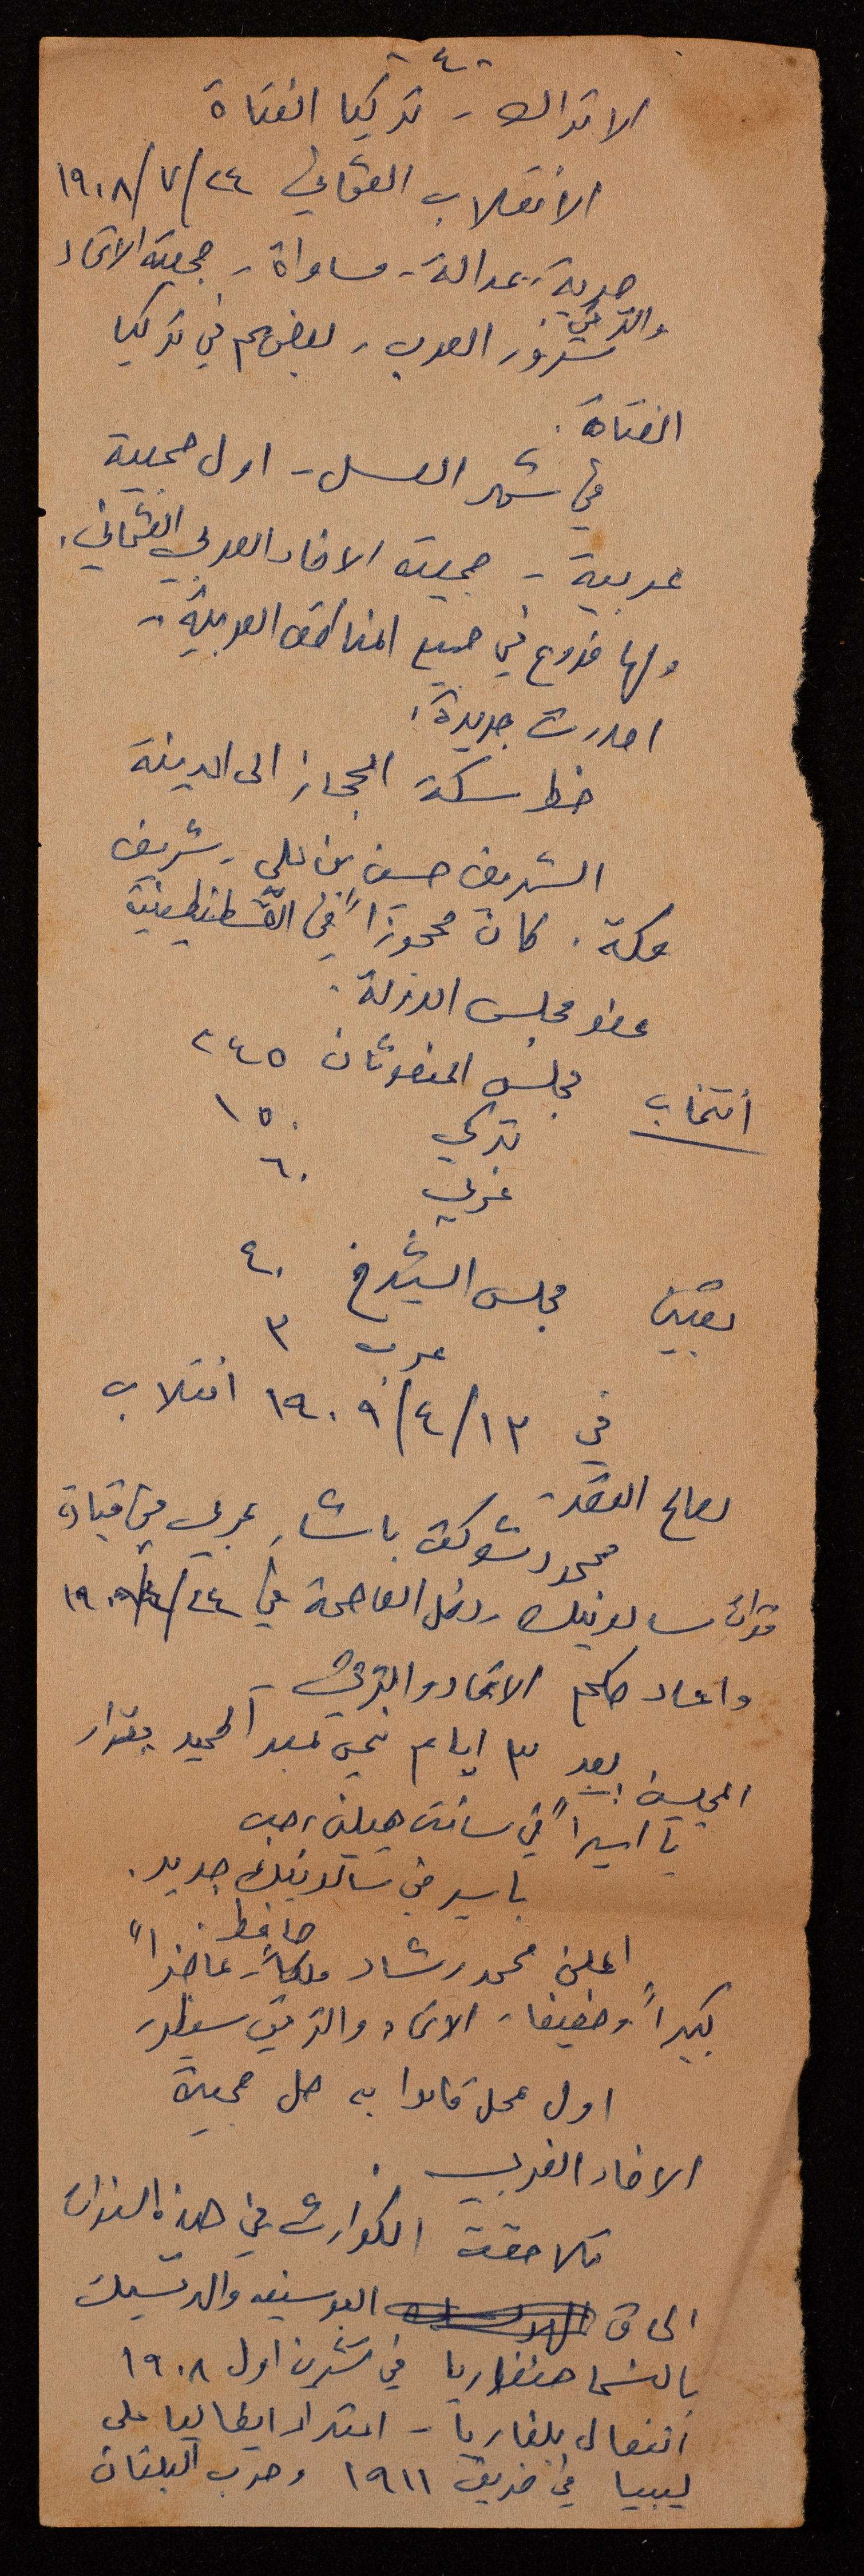 - ٤ -
الاتراك - تركيا الفتاة
الانقلاب العثماني ٢٤/٧/١٩٠٨
حرية - عدالة - مساواة - جمعية الاتحاد
والترقي
سرور العرب - بعضهم في تركيا
الفتاة.
في شهر العسل - اول جمعية
عربية - جمعية الاخاء العربي العثماني.
ولها فروع في جميع المناطق العربية -
اصدرت جريدة.
خط سكة الحجاز الى المدينة
الشريف حسين بن علي - شريف
مكة. كان محجوزاً في القسطنطينية
عضو مجلس الدولة.
انتخاب مجلس المبعوثان ٢٤٥
تركي ١٥٠
عربي ٦٠
تعيين مجلس الشيوخ ٤٠
عرب ٣
في ١٣/٤/١٩٠٩ انقلاب
لصالح
محمود شوكت باشا - عربي في قيادة
قوات سالونيك - دخل العاصمة في ٢٤/٤/١٩٠٩
واعاد حكم الاتحاد والترقي
بعد ٣ ايام نحي عبد الحميد بقرار
المجلس
اسيراً في سانت هيلين
في سالونيك جديد.
حافظ.
اعلن محمد رشاد ملكاً - عاجزاً
كبيراً وضعيفا - الاتحاد والترقي
اول عمل قاموا به حل جمعية
الاخاء العربي.
تلاحقت الكوارث في هذه السنوات
الحاق البوسنه والهرسك
بالنمسا هنغاريا في تشرين اول ١٩٠٨
انفصال بلغاريا - اعتداء ايطاليا على
ليبيا في خريف ١٩١١ وحرب البلقان